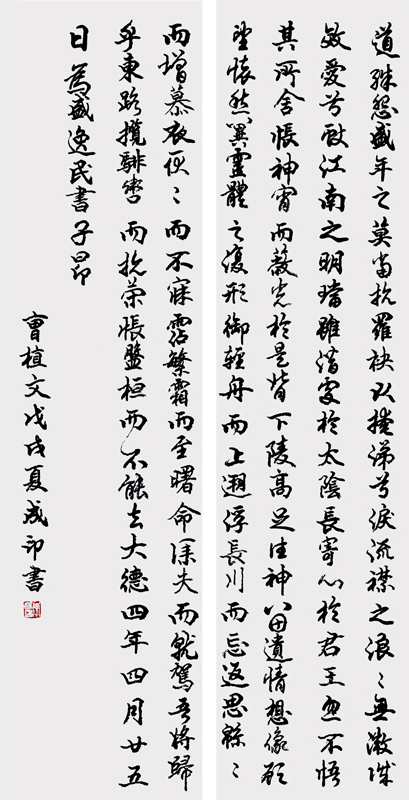 道殊怨盛年之莫當抗羅袂以掩涕兮淚流襟之浪〻無微
效愛兮獻江南之明璫雖潛處於太陰長寄心於君王忽不悟
其所舍悵神宵而蔽光於是背下陵高足往神留遺情想像顧
望懷愁冀靈體之復形御輕舟而上遡浮長川而忘返思綿〻
而增慕夜耿〻而不寐霑繁霜而至曙命僕夫而就駕吾將歸
乎東路攬騑轡而抗策悵盤桓而不能去大德四年四月廿五
日為盛逸民書子昂
曹植文戊戌夏成印書